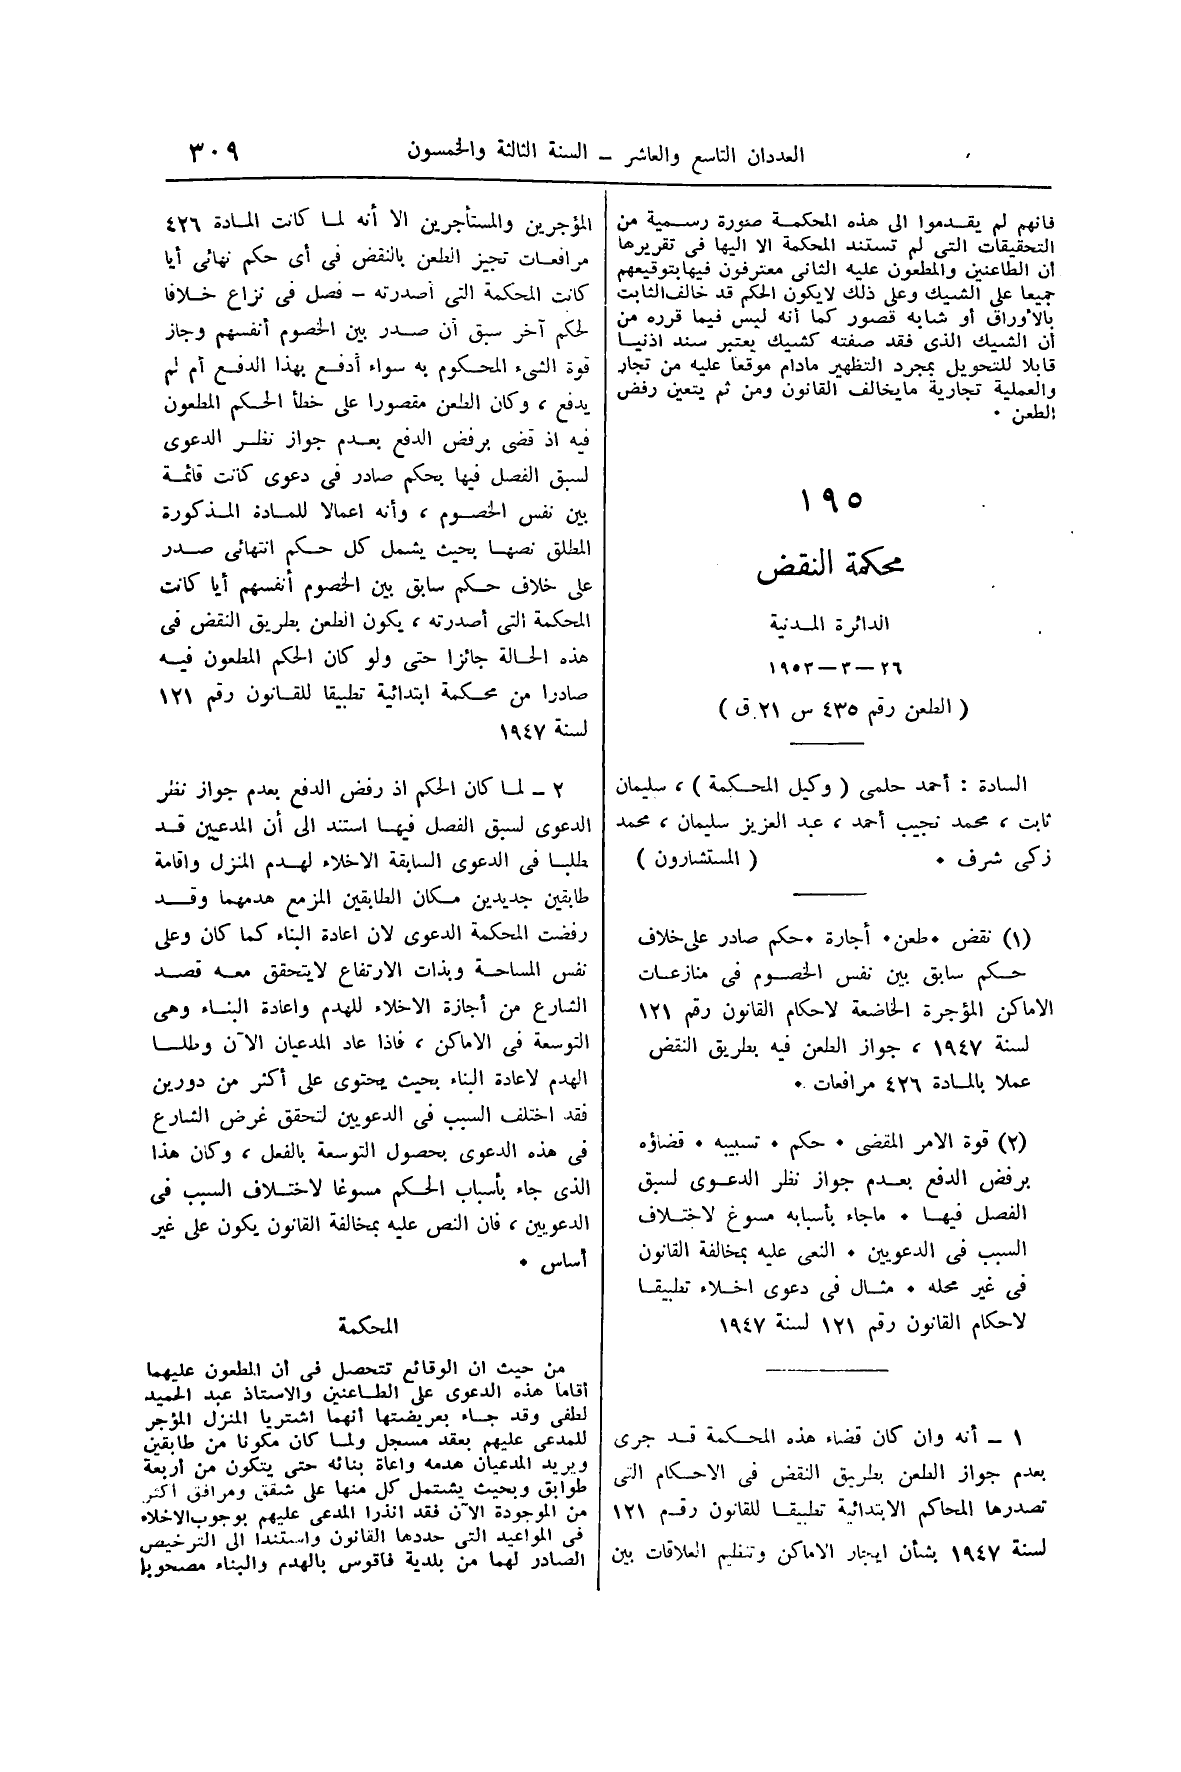 العددان التاسع والعاشر – السنة الثالثة والخمسون ٣٠٩
فانهم لم يقدموا الى هذه المحكمة صورة رسمية من
التحقيقات التى لم تستند المحكمة الا اليها فى تقريرها
أن الطاعنين والمطعون عليه الثانى معترفون فيها بتوقيعهم
جميعا على الشيك وعلى ذلك لايكون الحكم قد خالف الثابت
بالأوراق أو شابه قصور كما أنه ليس فيما قرره من
أن الشيك الذى فقد صفته كشيك يعتبر سند اذنيا
قابلا للتحويل بمجرد التظهير مادام موقعا عليه من تجار
والعملية تجارية مايخالف القانون ومن ثم يتعين رفض
الطعن ٠
١٩٥
محكمة النقض
الدائرة المدنية
٢٦–٣–١٩٥٣
( الطعن رقم ٤٣٥ س ٢١ ق )
السادة : أحمد حلمى ( وكيل المحكمة ) ، سليمان
ثابت ، محمد نجيب أحمد ، عبد العزيز سليمان ، محمد
زكى شرف ٠ ( المستشارون )
(١) نقض ٠ طعن ٠ أجارة ٠ حكم صادر على خلاف
حكم سابق بين نفس الخصوم فى منازعات
الاماكن المؤجرة الخاضعة لاحكام القانون رقم ١٢١
لسنة ١٩٤٧ ، جواز الطعن فيه بطريق النقض
عملا بالمادة ٤٢٦ مرافعات ٠
(٢) قوة الامر المقضى ٠ حكم ٠ تسبيبه ٠ قضاؤه
برفض الدفع بعدم جواز نظر الدعوى لسبق
الفصل فيها ٠ ماجاء بأسبابه مسوغ لاختلاف
السبب فى الدعويين ٠ النعى عليه بمخالفة القانون
فى غير محله ٠ مثال فى دعوى اخلاء تطبيقا
لاحكام القانون رقم ١٢١ لسنة ١٩٤٧
١ – أنه وان كان قضاء هذه المحكمة قد جرى
بعدم جواز الطعن بطريق النقض فى الاحكام التى
تصدرها المحاكم الابتدائية تطبيقا للقانون رقم ١٢١
لسنة ١٩٤٧ بشأن ايجار الاماكن وتنظيم العلاقات بين
المؤجرين والمستأجرين الا أنه لما كانت المادة ٤٢٦
مرافعات تجيز الطعن بالنقض فى أى حكم نهائى أيا
كانت المحكمة التى أصدرته – فصل فى نزاع خلافا
لحكم آخر سبق أن صدر بين الخصوم أنفسهم وجاز
قوة الشىء المحكوم به سواء أدفع بهذا الدفع أم لم
يدفع ، وكان الطعن مقصورا على خطأ الحكم المطعون
فيه اذ قضى برفض الدفع بعدم جواز نظر الدعوى
لسبق الفصل فيها بحكم صادر فى دعوى كانت قائمة
بين نفس الخصوم ، وأنه اعمالا للمادة المذكورة
المطلق نصها بحيث يشمل كل حكم انتهائى صدر
على خلاف حكم سابق بين الخصوم أنفسهم أيا كانت
المحكمة التى أصدرته ، يكون الطعن بطريق النقض فى
هذه الحالة جائزا حتى ولو كان الحكم المطعون فيه
صادرا من محكمة ابتدائية تطبيقا للقانون رقم ١٢١
لسنة ١٩٤٧
٢ – لما كان الحكم اذ رفض الدفع بعدم جواز نظر
الدعوى لسبق الفصل فيها استند الى أن المدعيين قد
طلبا فى الدعوى السابقة الاخلاء لهدم المنزل واقامة
طابقين جديدين مكان الطابقين المزمع هدمهما وقد
رفضت المحكمة الدعوى لان اعادة البناء كما كان وعلى
نفس المساحة وبذات الارتفاع لايتحقق معه قصد
الشارع من أجازة الاخلاء للهدم واعادة البناء وهى
التوسعة فى الاماكن ، فاذا عاد المدعيان الآن وطلبا
الهدم لاعادة البناء بحيث يحتوى على أكثر من دورين
فقد اختلف السبب فى الدعويين لتحقق غرض الشارع
فى هذه الدعوى بحصول التوسعة بالفعل ، وكان هذا
الذى جاء بأسباب الحكم مسوغا لاختلاف السبب فى
الدعويين ، فان النص عليه بمخالفة القانون يكون على غير
أساس ٠
المحكمة
من حيث ان الوقائع تتحصل فى أن المطعون عليهما
أقاما هذه الدعوى على الطاعنين والاستاذ عبد الحميد
لطفى وقد جاء بعريضتها أنهما اشتريا المنزل المؤجر
للمدعى عليهم بعقد مسجل ولما كان مكونا من طابقين
ويريد المدعيان هدمه واعاة بنائه حتى يتكون من أربعة
طوابق وبحيث يشتمل كل منها على شقق ومرافق أكثر
من الموجودة الآن فقد انذرا المدعى عليهم بوجوب الاخلاء
فى المواعيد التى حددها القانون واستندا الى الترخيص
الصادر لهما من بلدية فاقوس بالهدم والبناء مصحوبا